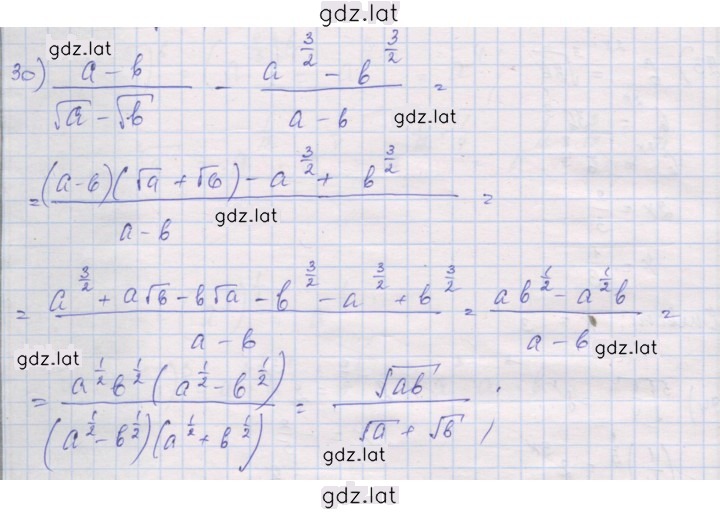 gdz.lat
gdz.lat
30) (a - b)/(√a - √b) - (a^(3/2) - b^(3/2))/(a - b) =
gdz.lat
= ((a - b)(√a + √b) - a^(3/2) + b^(3/2))/(a - b) =
gdz.lat
= (a^(3/2) + a√b - b√a - b^(3/2) - a^(3/2) + b^(3/2))/(a - b) = (ab^(1/2) - a^(1/2)b)/(a - b) =
gdz.lat
gdz.lat
= (a^(1/2)b^(1/2)(a^(1/2) - b^(1/2)))/((a^(1/2) - b^(1/2))(a^(1/2) + b^(1/2))) = √(ab)/(√a + √b) ;
gdz.lat
gdz.lat